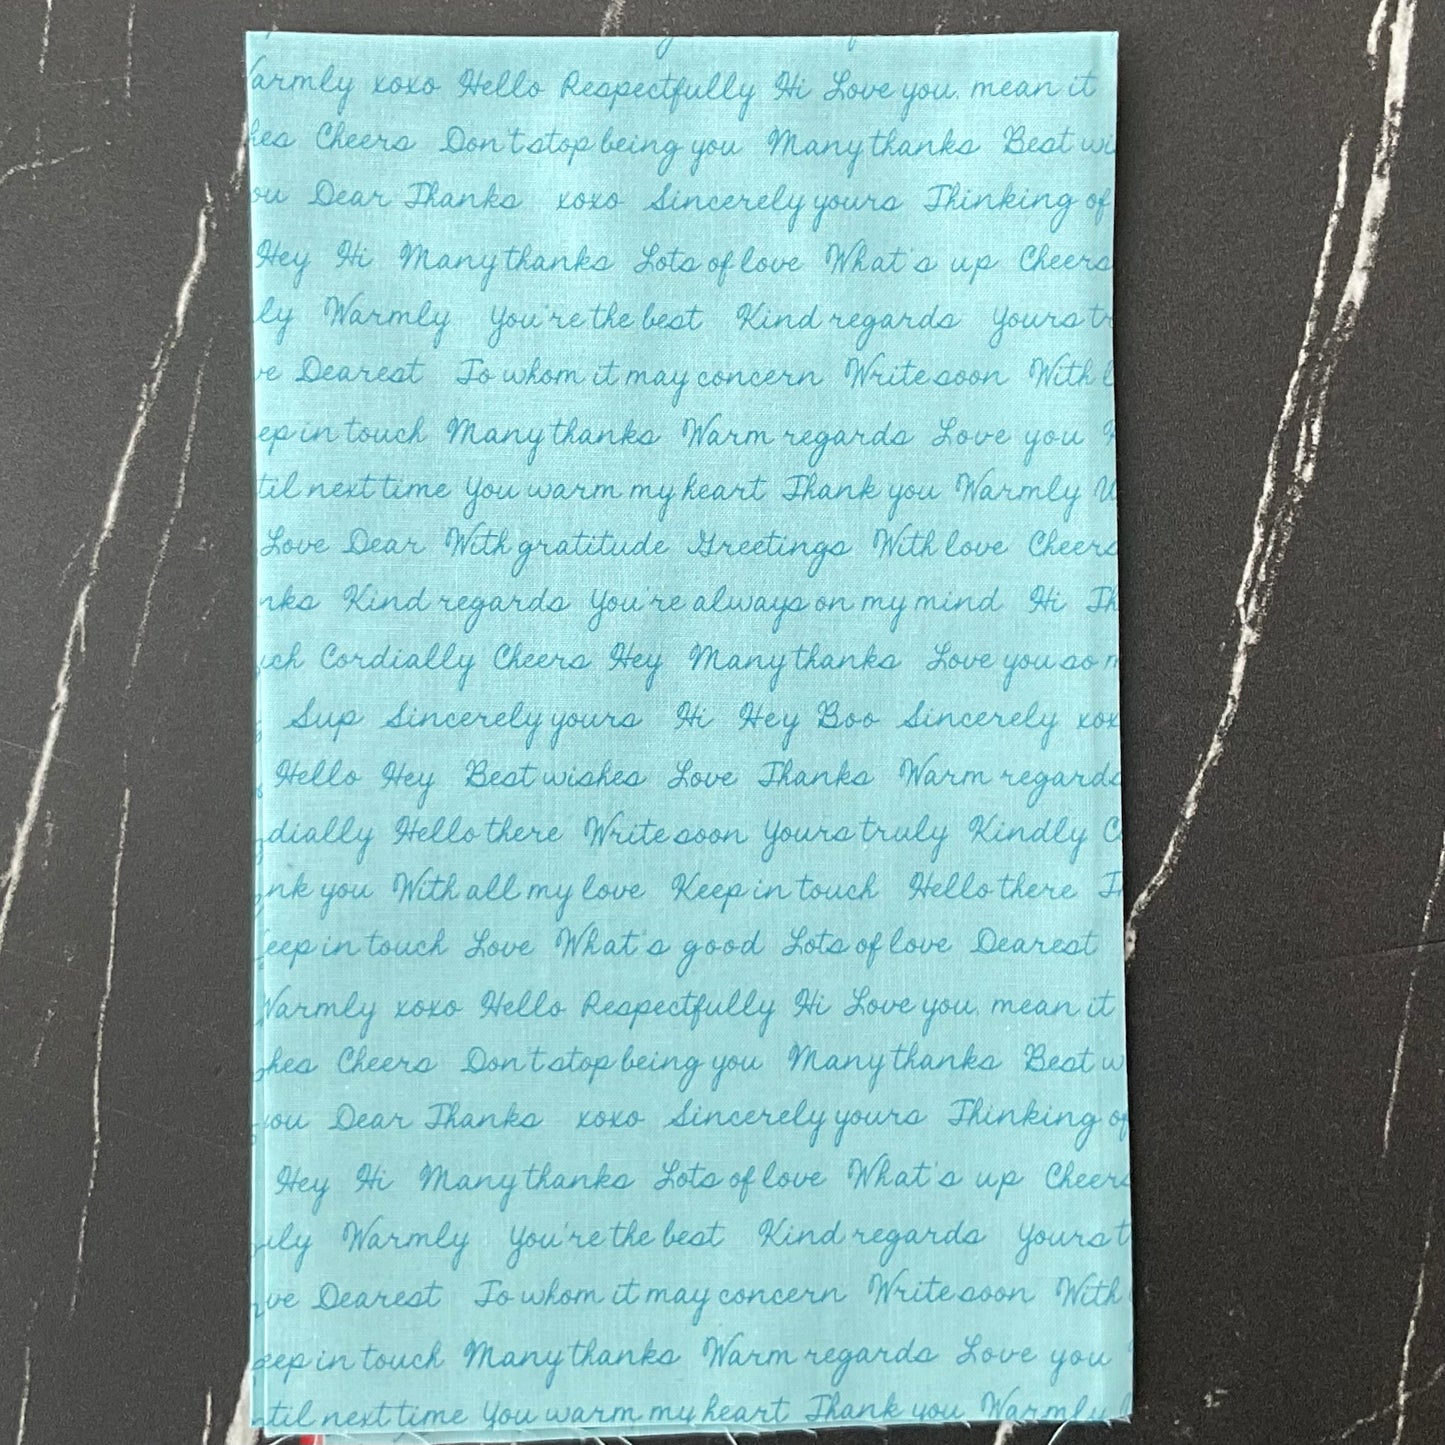 armly xoxo Hello Respectfully Hi Love you, mean it
hes Cheers Don't stop being you Many thanks Best wi
ou Dear Thanks xoxo Sincerely yours Thinking of
Hey Hi Many thanks Lots of love What's up Cheers
ly Warmly You're the best Kind regards Yours tr
ve Dearest To whom it may concern Write soon With l
eep in touch Many thanks Warm regards Love you
til next time You warm my heart Thank you Warmly U
Love Dear With gratitude Greetings With love Cheers
nks Kind regards You're always on my mind Hi Th
uch Cordially Cheers Hey Many thanks Love you so m
Sup Sincerely yours Hi Hey Boo Sincerely xox
Hello Hey Best wishes Love Thanks Warm regards
dially Hello there Write soon Yours truly Kindly C
nk you With all my love Keep in touch Hello there Th
Keep in touch Love What's good Lots of love Dearest
Warmly xoxo Hello Respectfully Hi Love you, mean it
shes Cheers Don't stop being you Many thanks Best w
you Dear Thanks xoxo Sincerely yours Thinking of
Hey Hi Many thanks Lots of love What's up Cheers
uly Warmly You're the best Kind regards Yours t
ove Dearest To whom it may concern Write soon With
eep in touch Many thanks Warm regards Love you
ntil next time You warm my heart Thank you Warmly